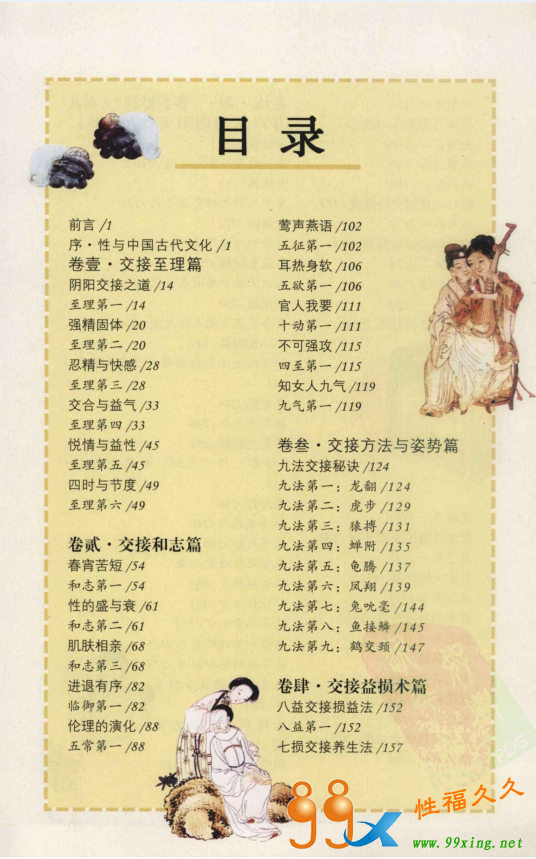 目录
前言/1
序·性与中国古代文化/1
卷壹·交接至理篇
阴阳交接之道/14
至理第一/14
强精固体/20
至理第二/20
忍精与快感/28
至理第三/28
交合与益气/33
至理第四/33
悦情与益性/45
至理第五/45
四时与节度/49
至理第六/49
卷贰·交接和志篇
春宵苦短/54
和志第一/54
性的盛与衰/61
和志第二/61
肌肤相亲/68
和志第三/68
进退有序/82
临御第一/82
伦理的演化/88
五常第一/88
莺声燕语/102
五征第一/102
耳热身软/106
五欲第一/106
官人我要/111
十动第一/111
不可强攻/115
四至第一/115
知女人九气/119
九气第一/119
卷叁·交接方法与姿势篇
九法交接秘诀/124
九法第一：龙翻/124
九法第二：虎步/129
九法第三：猿搏/131
九法第四：蝉附/135
九法第五：龟腾/137
九法第六：凤翔/139
九法第七：兔吮毫/144
九法第八：鱼接鳞/145
九法第九：鹤交颈/147
卷肆·交接益损术篇
八益交接损益法/152
八益第一/152
七损交接养生法/157
99x
性福久久
www.99xing.net